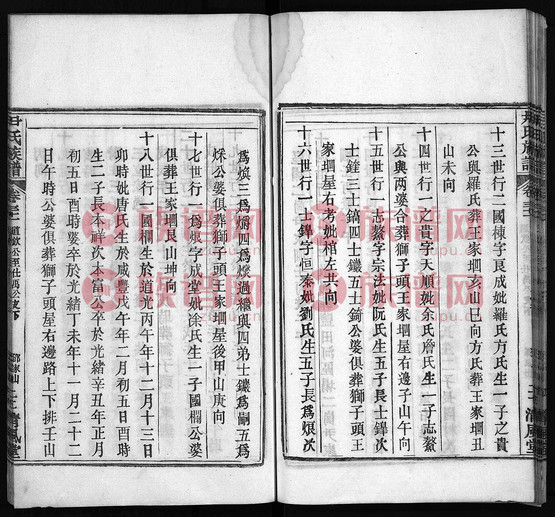 十三世行二國棟字艮成妣羅氏方氏生一子之貴
公與羅氏葬王家堋亥山巳向方氏葬王家堋丑
山未向
十四世行一之貴字天順妣余氏詹氏生一子志鰲
公與兩婆合葬獅子頭王家堋屋右邊子山午向
十五世行一志鰲字宗法妣阮氏生五子長士鋒次
士鏗三士鎬四士鑯五士錡公婆俱葬獅子頭王
家堋屋右考妣棺左共向
十六世行一士鋒字恒泰妣劉氏生五子長爲烺次
清風堂
尹氏族譜
爲煐三爲炯四爲煥過繼與四弟士鑯爲嗣五爲
婆俱葬獅子頭王家堋屋後甲山庚向
十七世行一爲烺字成堂妣徐氏生一子國欄公婆
俱葬王家堋艮山坤向
十八世行一國欄生於道光丙午年十二月十三日
卯時妣唐氏生於咸豐戊午年二月初五日酉時
生二子長本祥次本富公卒於光緒辛丑年正月
初五日酉時婆卒於光緒丁未年十一月二十二
日午時公婆俱葬獅子頭屋右邊路上下排壬山
尹氏族譜
卷三
清風堂
族谱网